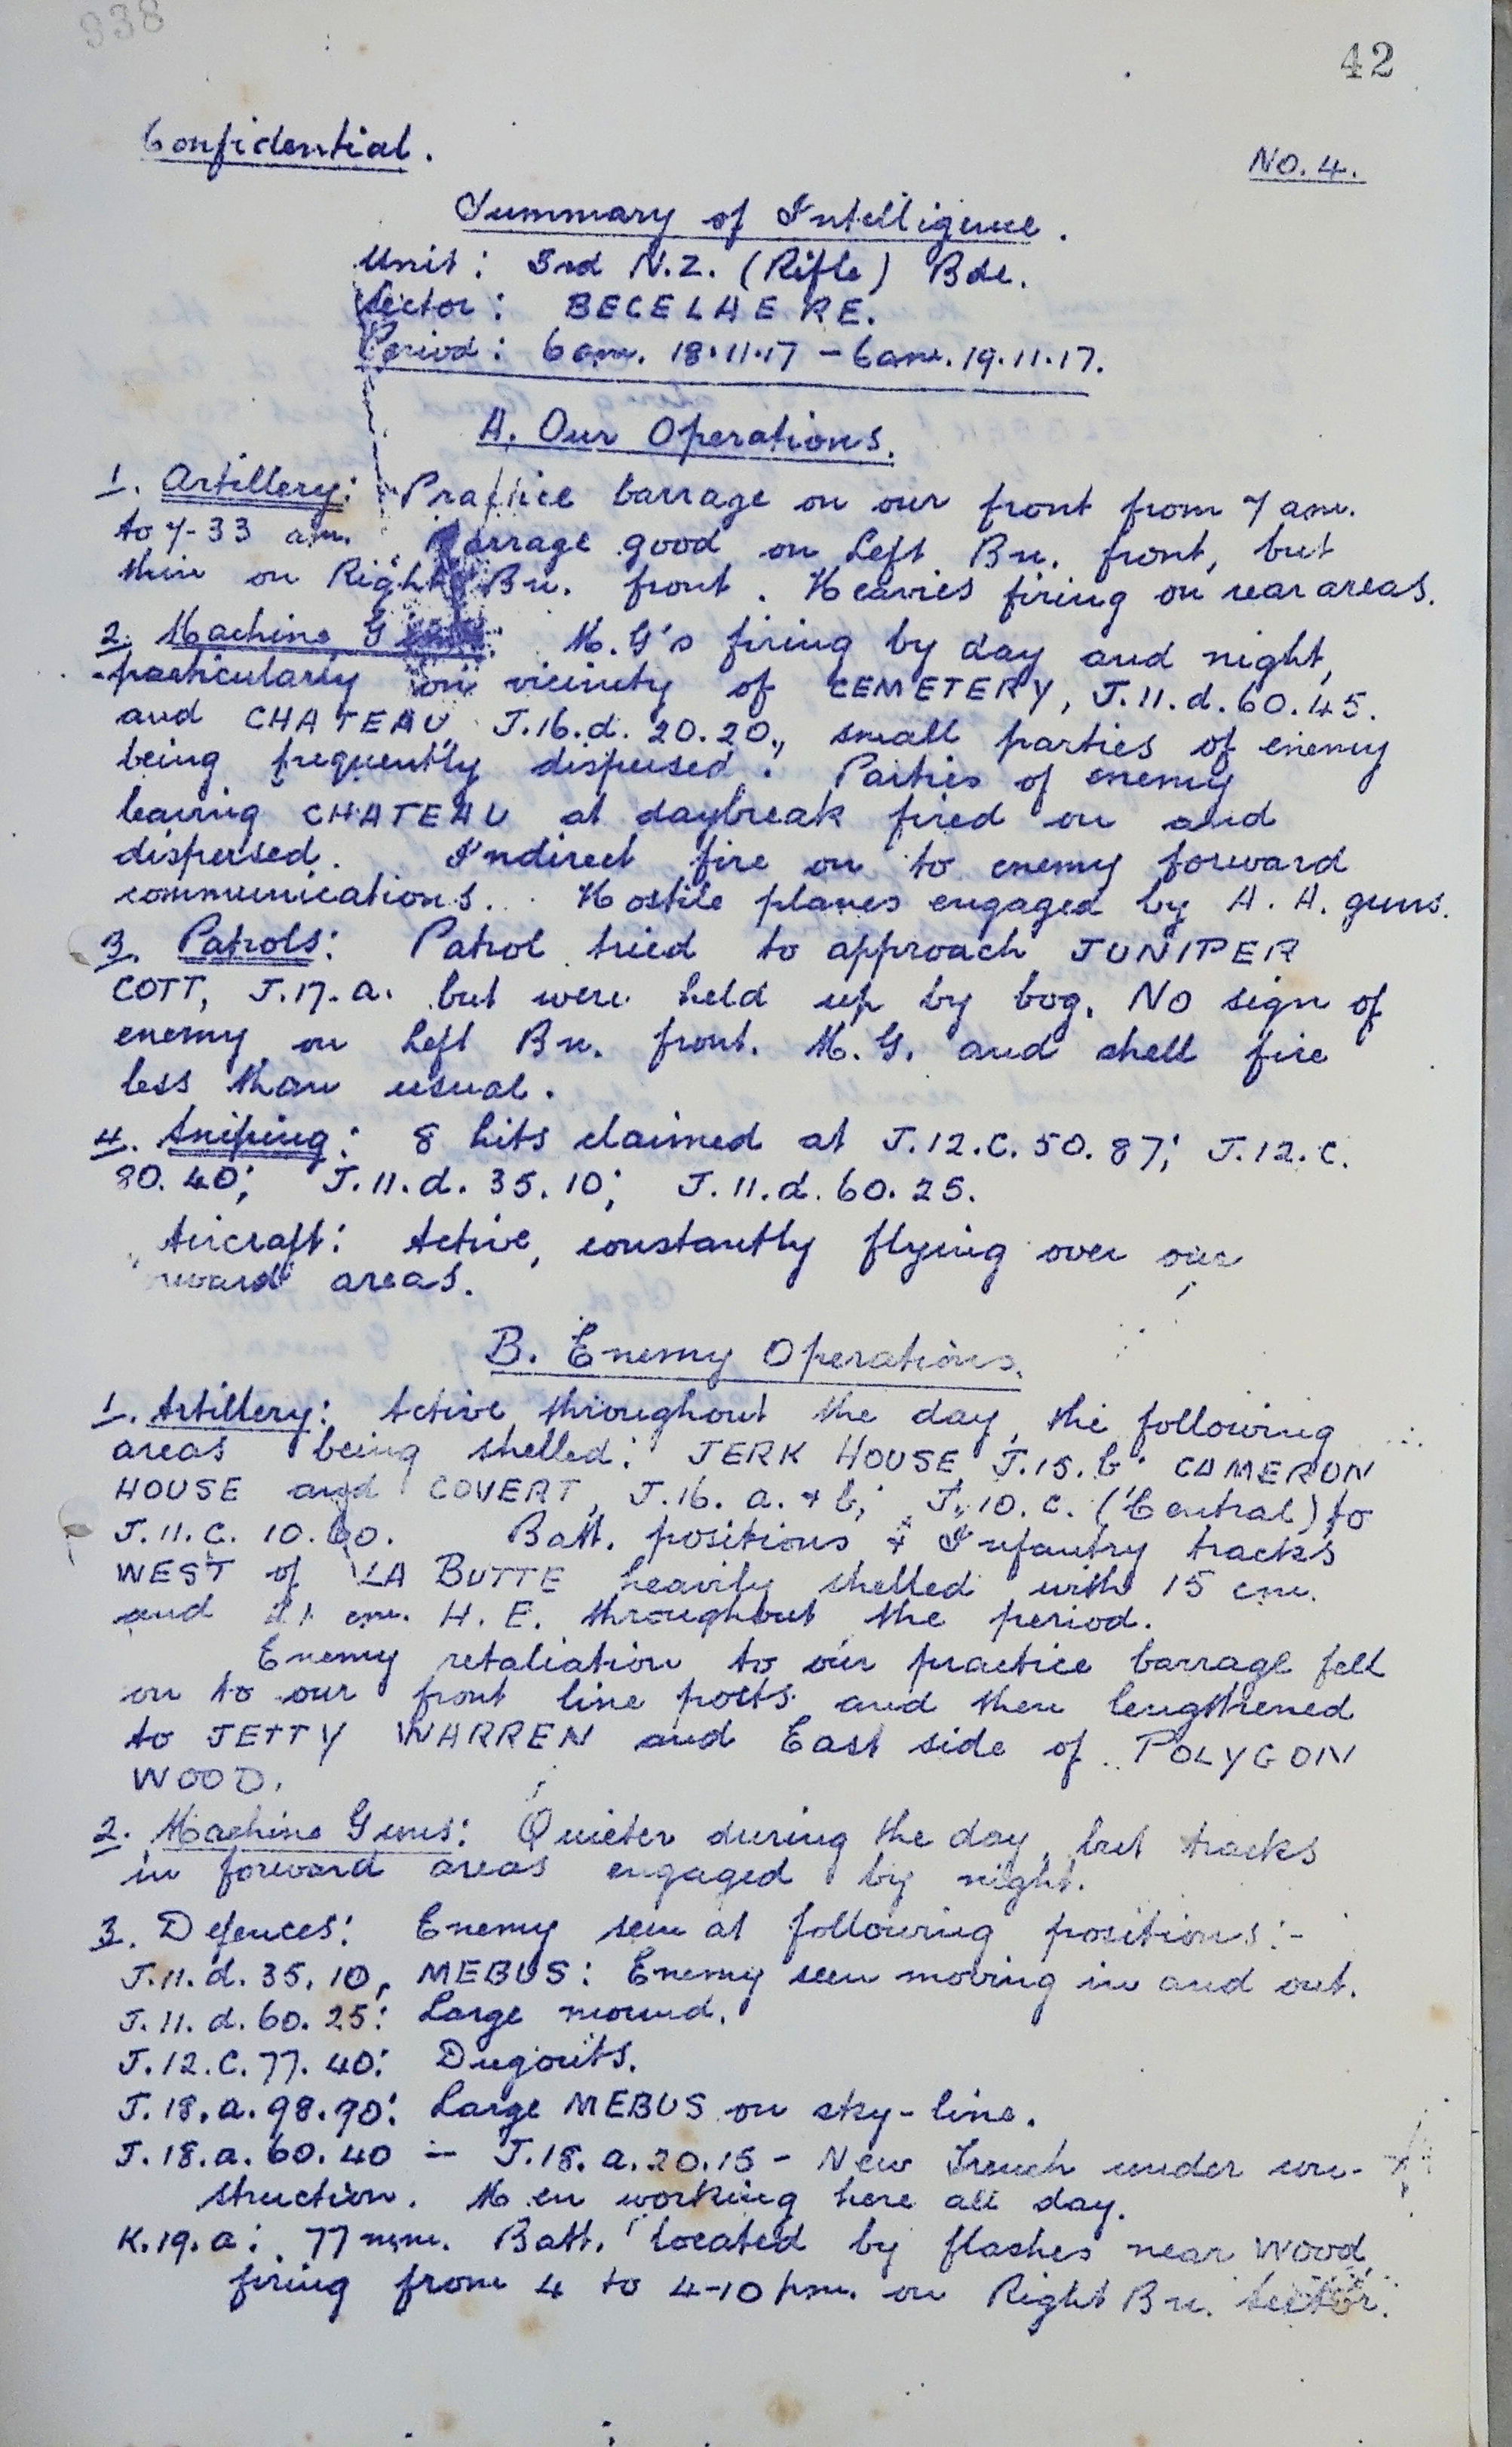 938
42
Confidential.
No. 4.
Summary of Intelligence.
Unit: 3rd N.Z. (Rifle) Bde.
Sector: BECELAERE.
Period: 6 am. 18.11.17 – 6 am. 19.11.17.
A. Our Operations.
1. Artillery: Practice barrage on our front from 7 am.
to 7-33 am. Barrage good on Left Bn. front, but
thin on Right Bn. front. Heavies firing on rear areas.
2. Machine Guns: M.G's firing by day and night,
particularly on vicinity of CEMETERY, J.11.d.60.45.
and CHATEAU J.16.d.20.20., small parties of enemy
being frequently dispersed. Parties of enemy
leaving CHATEAU at daybreak fired on and
dispersed. Indirect fire on to enemy forward
communications. Hostile planes engaged by A.A. guns.
3. Patrols: Patrol tried to approach JUNIPER
COTT, J.17.a. but were held up by bog. No sign of
enemy on Left Bn. front. M.G. and shell fire
less than usual.
4. Sniping: 8 hits claimed at J.12.c.50.87; J.12.c.
80.40; J.11.d.35.10; J.11.d.60.25.
Aircraft: Active, constantly flying over our
areas.
B. Enemy Operations.
1. Artillery: Active throughout the day, the following
areas being shelled: JERK HOUSE, J.15.b. CAMERON
HOUSE and COVERT, J.16.a. & b; J.10.c. (Central) to
J.11.c.10.60. Batt. positions & Infantry tracks
WEST of LA BUTTE heavily shelled with 15 cm.
and 21 cm. H.E. throughout the period.
Enemy retaliation to our practice barrage fell
on to our front line posts and then lengthened
to JETTY WARREN and East side of POLYGON
WOOD.
2. Machine Guns: Quieter during the day, but tracks
in forward areas engaged by night.
3. Defences: Enemy seen at following positions:-
J.11.d.35.10, MEBUS: Enemy seen moving in and out.
J.11.d.60.25: Large mound.
J.12.c.77.40: Dugouts.
J.18.a.98.90: Large MEBUS on sky-line.
J.18.a.60.40 – J.18.a.20.15 – New Trench under con-
struction. Men working here all day.
K.19.a: 77 mm. Batt. located by flashes near Wood
firing from 4 to 4-10 pm. on Right Bn. Sector.